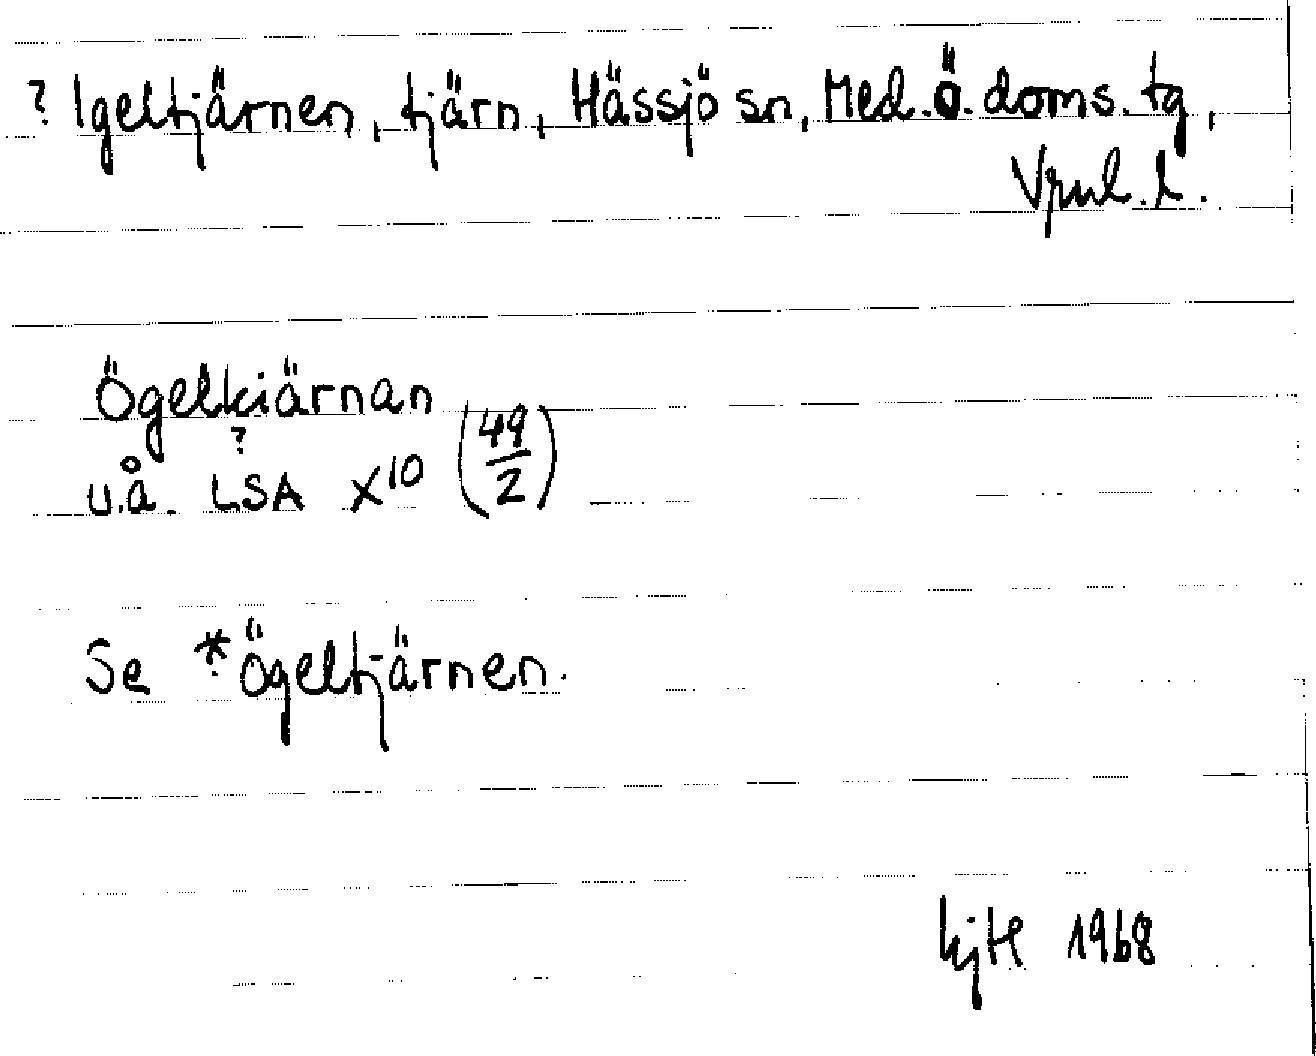 ? Igeltjärnen, tjärn, Hässjö sn, Med. ö. doms. tg,
Vrnl. l.
Ögelkiärnan
?
u.å. LSA X¹⁰ (49/2)
Se *Ögeltjärnen.
1968